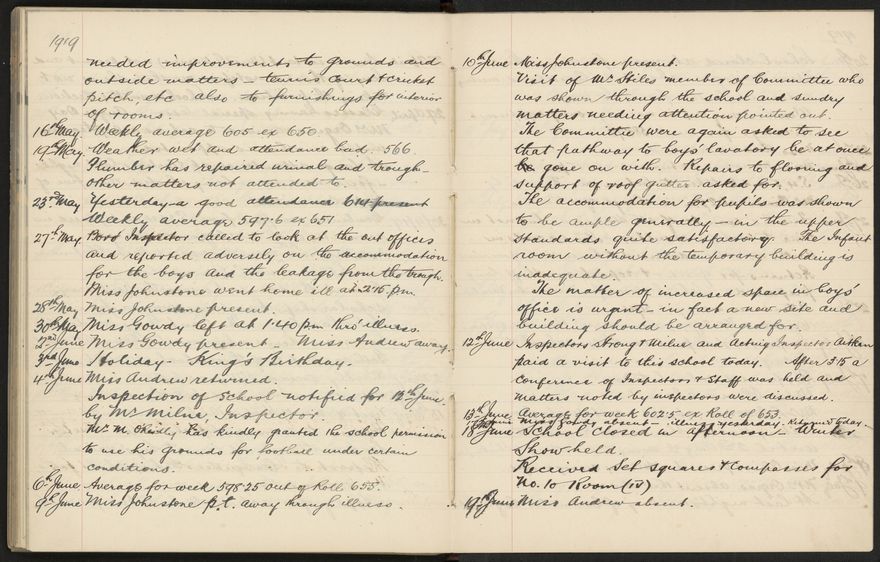 1919
needed improvements to grounds and
outside matters - tennis court & cricket
pitch, etc also to furnishings for interior
of rooms.
16th May. Weekly average 605 ex 650.
19th May. Weather wet and attendance bad. 566
Plumber has repaired urinal and trough -
other matters not attended to.
23rd May Yesterday - a good attendance 614 present
Weekly average 597.6 ex 651
27th May Board Inspector called to look at the out offices
and reported adversely on the accommodation
for the boys and the leakage from the trough.
Miss Johnstone went home ill at 2.15 p.m.
28th May Miss Johnstone present.
30th May Miss Gowdy left at 1.40 p.m thro' illness.
2nd June Miss Gowdy present. Miss Andrew away.
3rd June Holiday - King's Birthday.
4th June Miss Andrew returned.
Inspection of School notified for 12th June.
by Mr Milne, Inspector.
Mr. M. has kindly granted the school permission
to use his grounds for football under certain
conditions.
6th June Average for week 598.25 out of Roll 655.
9th June Miss Johnstone p.t. away through illness.
10th June Miss Johnstone present.
Visit of Mr Stiles member of Committee who
was shown through the school and sundry
matters needing attention pointed out.
The Committee were again asked to see
that pathway to boys' lavatory be at once
be gone on with. Repairs to flooring and
support of roof gutter asked for.
The accommodation for pupils was shown
to be ample generally - in the upper
standards quite satisfactory. The Infant
room without the temporary building is
inadequate.
The matter of increased space in boys'
office is urgent - in fact a new site and
building should be arranged for.
12th June Inspectors Strong & Milne and Acting Inspector Aitken
paid a visit to this school today. After 3.15 a
conference of Inspectors & Staff was held and
matters noted by inspectors were discussed.
13th June Average for week 602.5 ex Roll of 653.
Miss Gowdy absent - illness yesterday. Returned today -
18th June School closed in afternoon - Winter
Show held.
Received Set squares & Compasses for
No. 10 Room (IV)
19th June Miss Andrew absent.